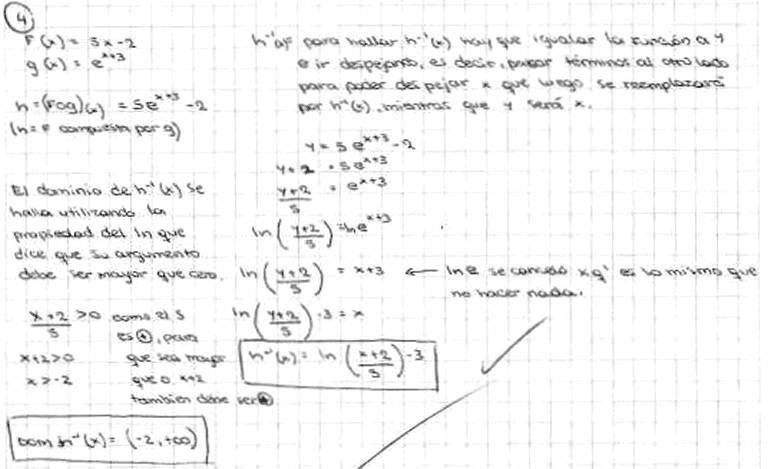 4
F(x) = 5x-2
g(x) = e^{x+3}
h = (Fog)(x) = 5e^{x+3} - 2
(h = F compuesta por g)
h^{-1}(x) para hallar h^{-1}(x) hay que igualar la función a y
e ir despejando, es decir, pasar términos al otro lado
para poder despejar x que luego se reemplazará
por h^{-1}(x), mientras que y será x.
y = 5e^{x+3} - 2
y+2 = 5e^{x+3}
\frac{y+2}{5} = e^{x+3}
ln(\frac{y+2}{5}) = ln e^{x+3}
ln(\frac{y+2}{5}) = x+3 ← ln e se cancela xq' es lo mismo que
no hacer nada.
ln(\frac{y+2}{5}) - 3 = x
h^{-1}(x) = ln(\frac{x+2}{5}) - 3
El dominio de h^{-1}(x) se
halla utilizando la
propiedad del ln que
dice que su argumento
debe ser mayor que cero.
\frac{x+2}{5} > 0 como el 5
es ⊕, para
x+2>0 que sea mayor
x>-2 que 0 x+2
tambien debe ser ⊕
Dom h^{-1}(x) = (-2, +∞)